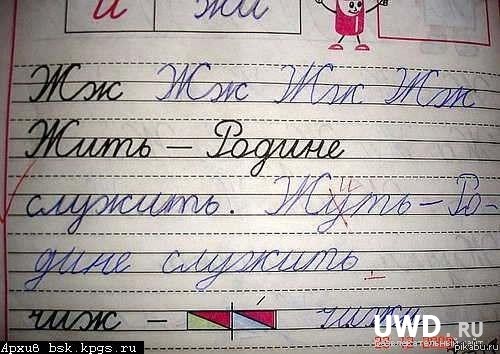 и жи
Жж Жж Жж Жж
Жить – Родине
служить. Жуть – Ро-
и
дине служить
чиж – чижи
UWD.RU
Архив bsk.kpgs.ru
pikabu.ru